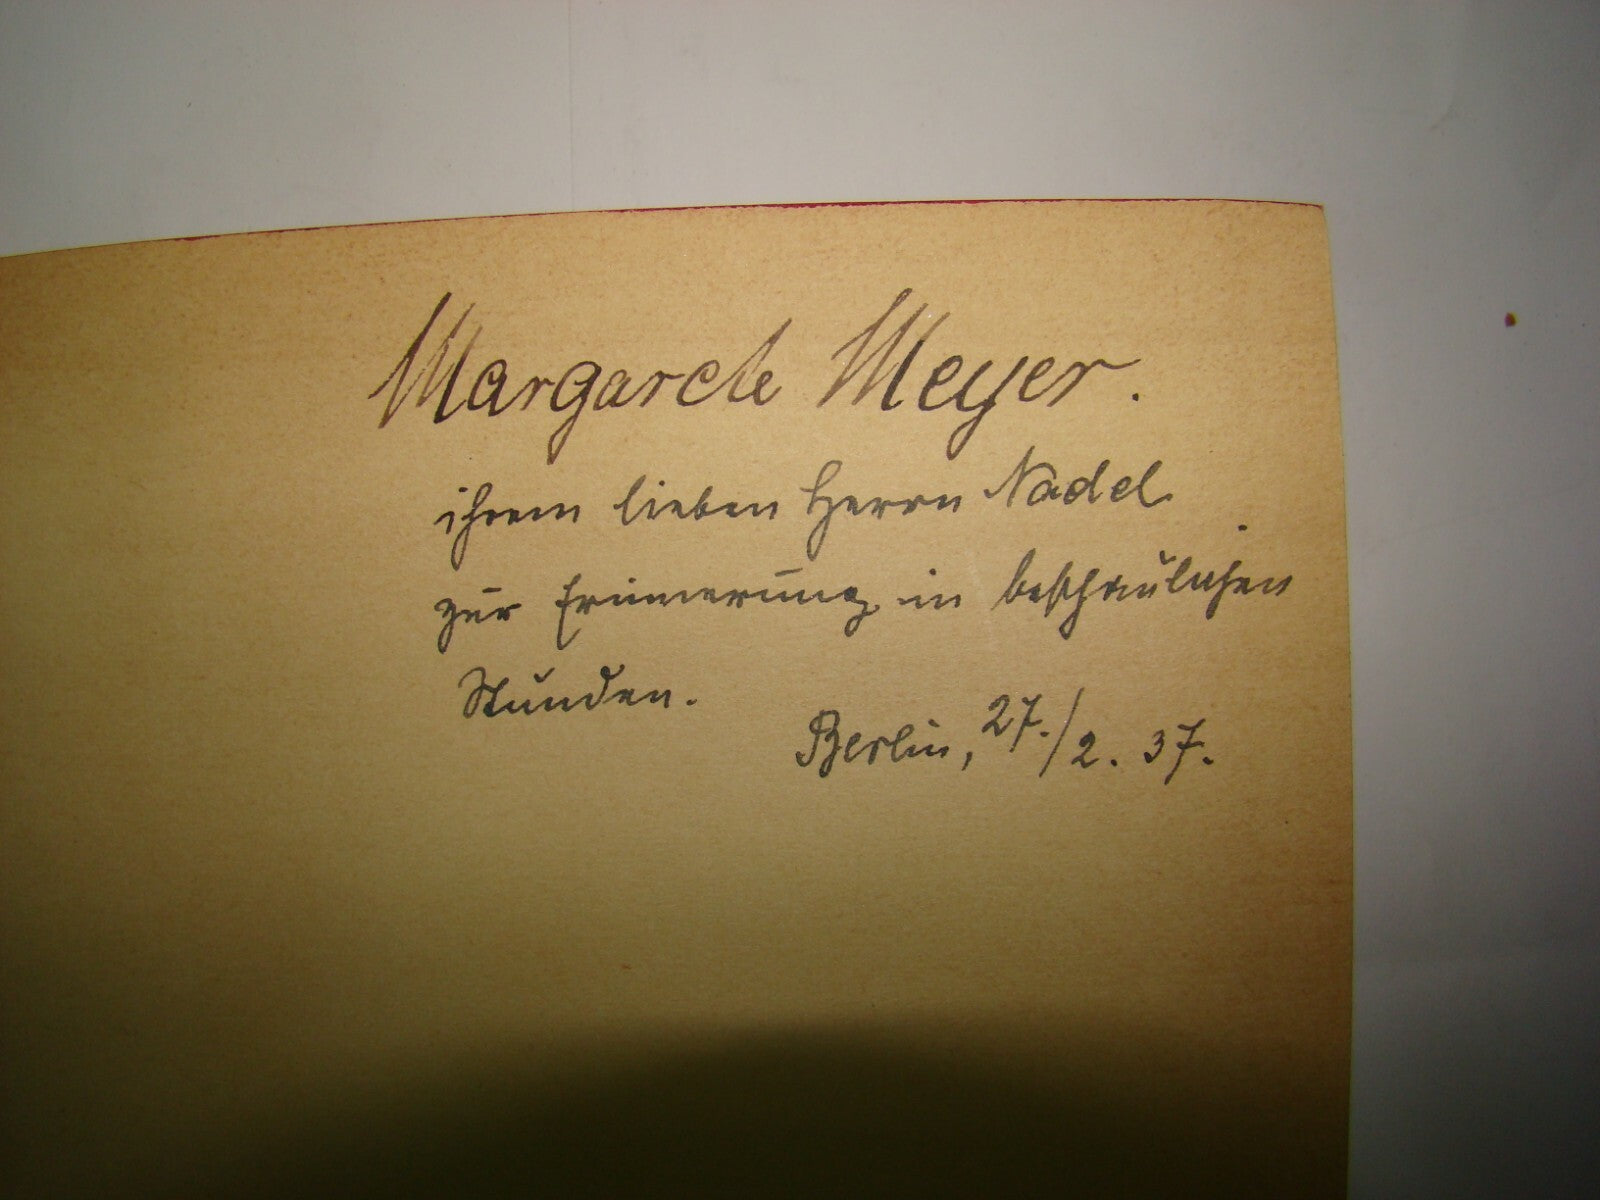 Margarete Meyer.
ihrem lieben Herrn Nadel
zur Erinnerung in beschaulichen
Stunden.
Berlin, 27./2. 37.